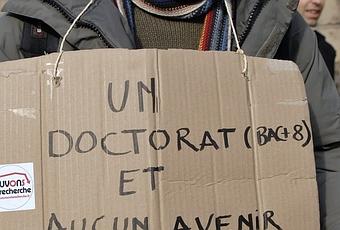 UN
DOCTORAT (BAC+8)
ET
AUCUN AVENIR
UVONS
recherche